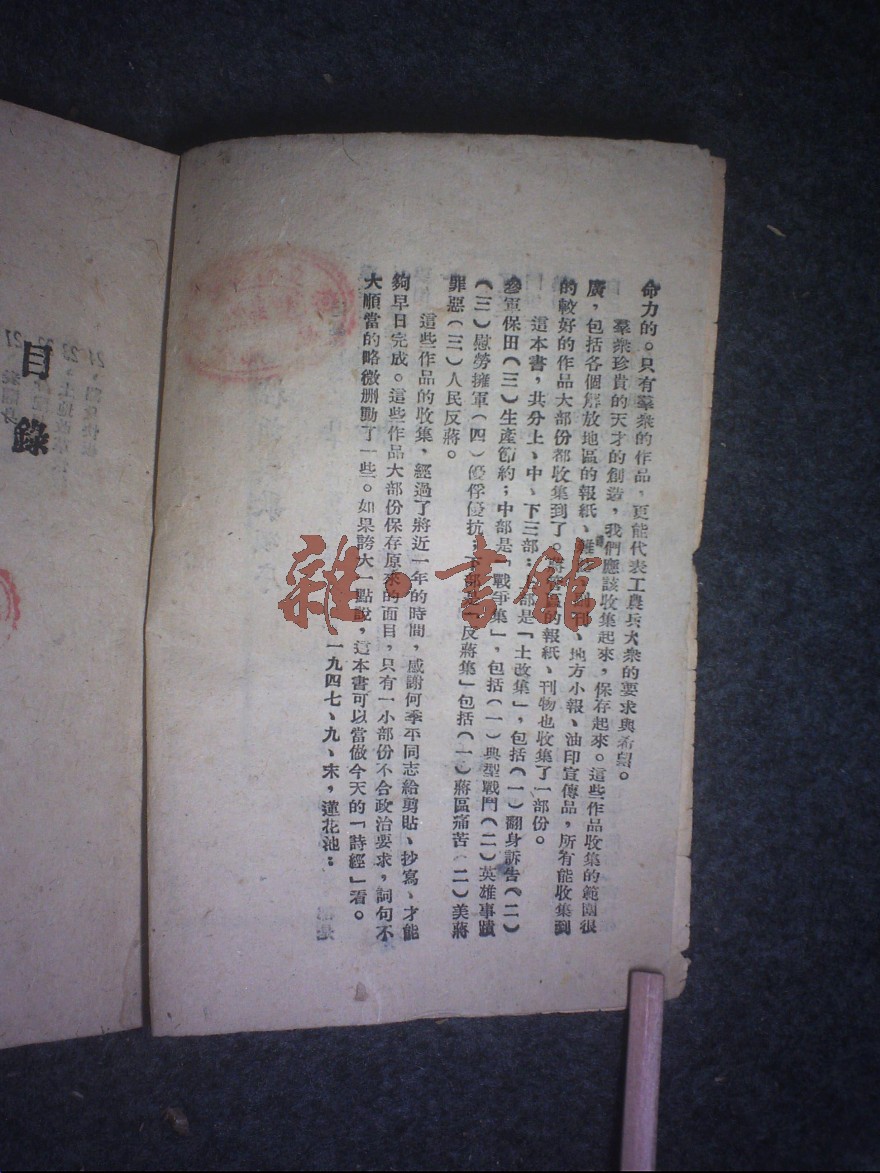 命力的。只有羣衆的作品，更能代表工農兵大衆的要求與希望。
羣衆珍貴的天才的創造，我們應該收集起來，保存起來。這些作品收集的範圍很
廣，包括各個解放地區的報紙、雜誌、刊、地方小報、油印宣傳品，所有能收集到
的較好的作品大部份都收集到了。的報紙、刊物也收集了一部份。
這本書，共分上、中、下三部：上部是「土改集」，包括（一）翻身訴告（二）
參軍保田（三）生產節約；中部是「戰爭集」，包括（一）典型戰鬥（二）英雄事蹟
（三）慰勞擁軍（四）優俘優抗；下部是「反蔣集」包括（一）蔣區痛苦（二）美蔣
罪惡（三）人民反蔣。
這些作品的收集，經過了將近一年的時間，感謝何季平同志給剪貼、抄寫、才能
夠早日完成。這些作品大部份保存原來的面目，只有一小部份不合政治要求，詞句不
大順當的略微删動了一些。如果誇大一點說，這本書可以當做今天的「詩經」看。
一九四七、九、末，蓮花池：
目錄
雜·書館